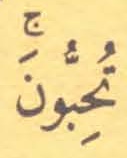 تُحِبُّونَۚ